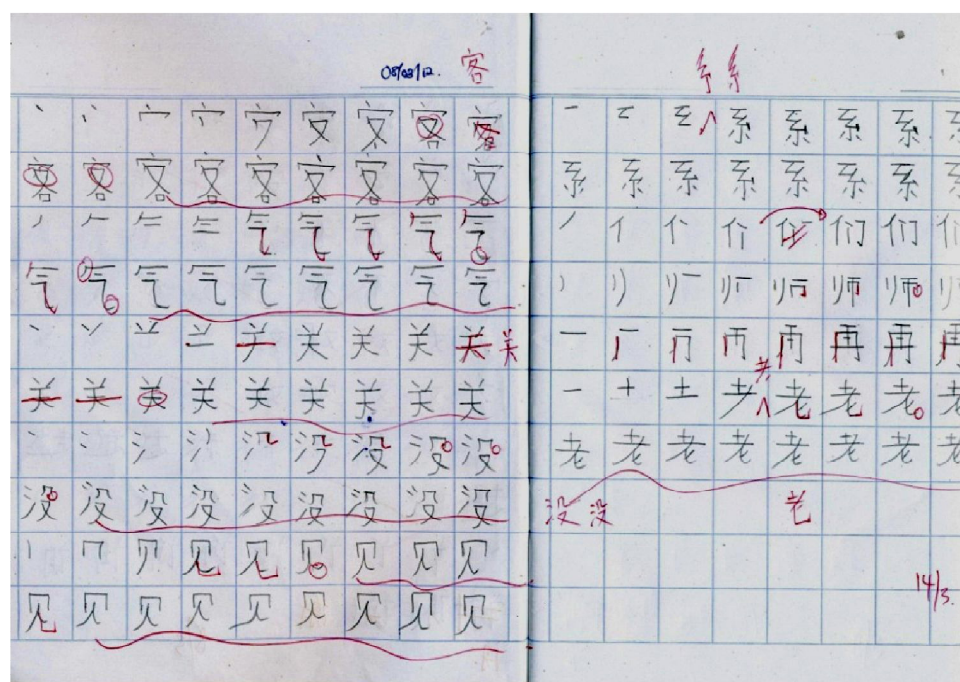 08/03/12. 客
丶 宀 客 客
客 客 客 客 客 客 客 客 客
丿 𠂉 气 气 气 气 气
气 气 气 气 气 气 气 气 气
丶 丷 关 关 关 关 关 关
关 关 关 关 关 关 关 关 关
丶 冫 氵 没 没 没
没 没 没 没 没 没 没 没 没
丨 冂 见 见 见 见 见 见
见 见 见 见 见 见 见 见 见
系 系
一 系 系 系 系 系
系 系 系 系 系 系 系 系
丿 亻 们 们
师 师
一 再 再 再
一 十 土 耂 老 老 老 老
老 老 老 老 老 老 老 老
没 没 老
14/3.